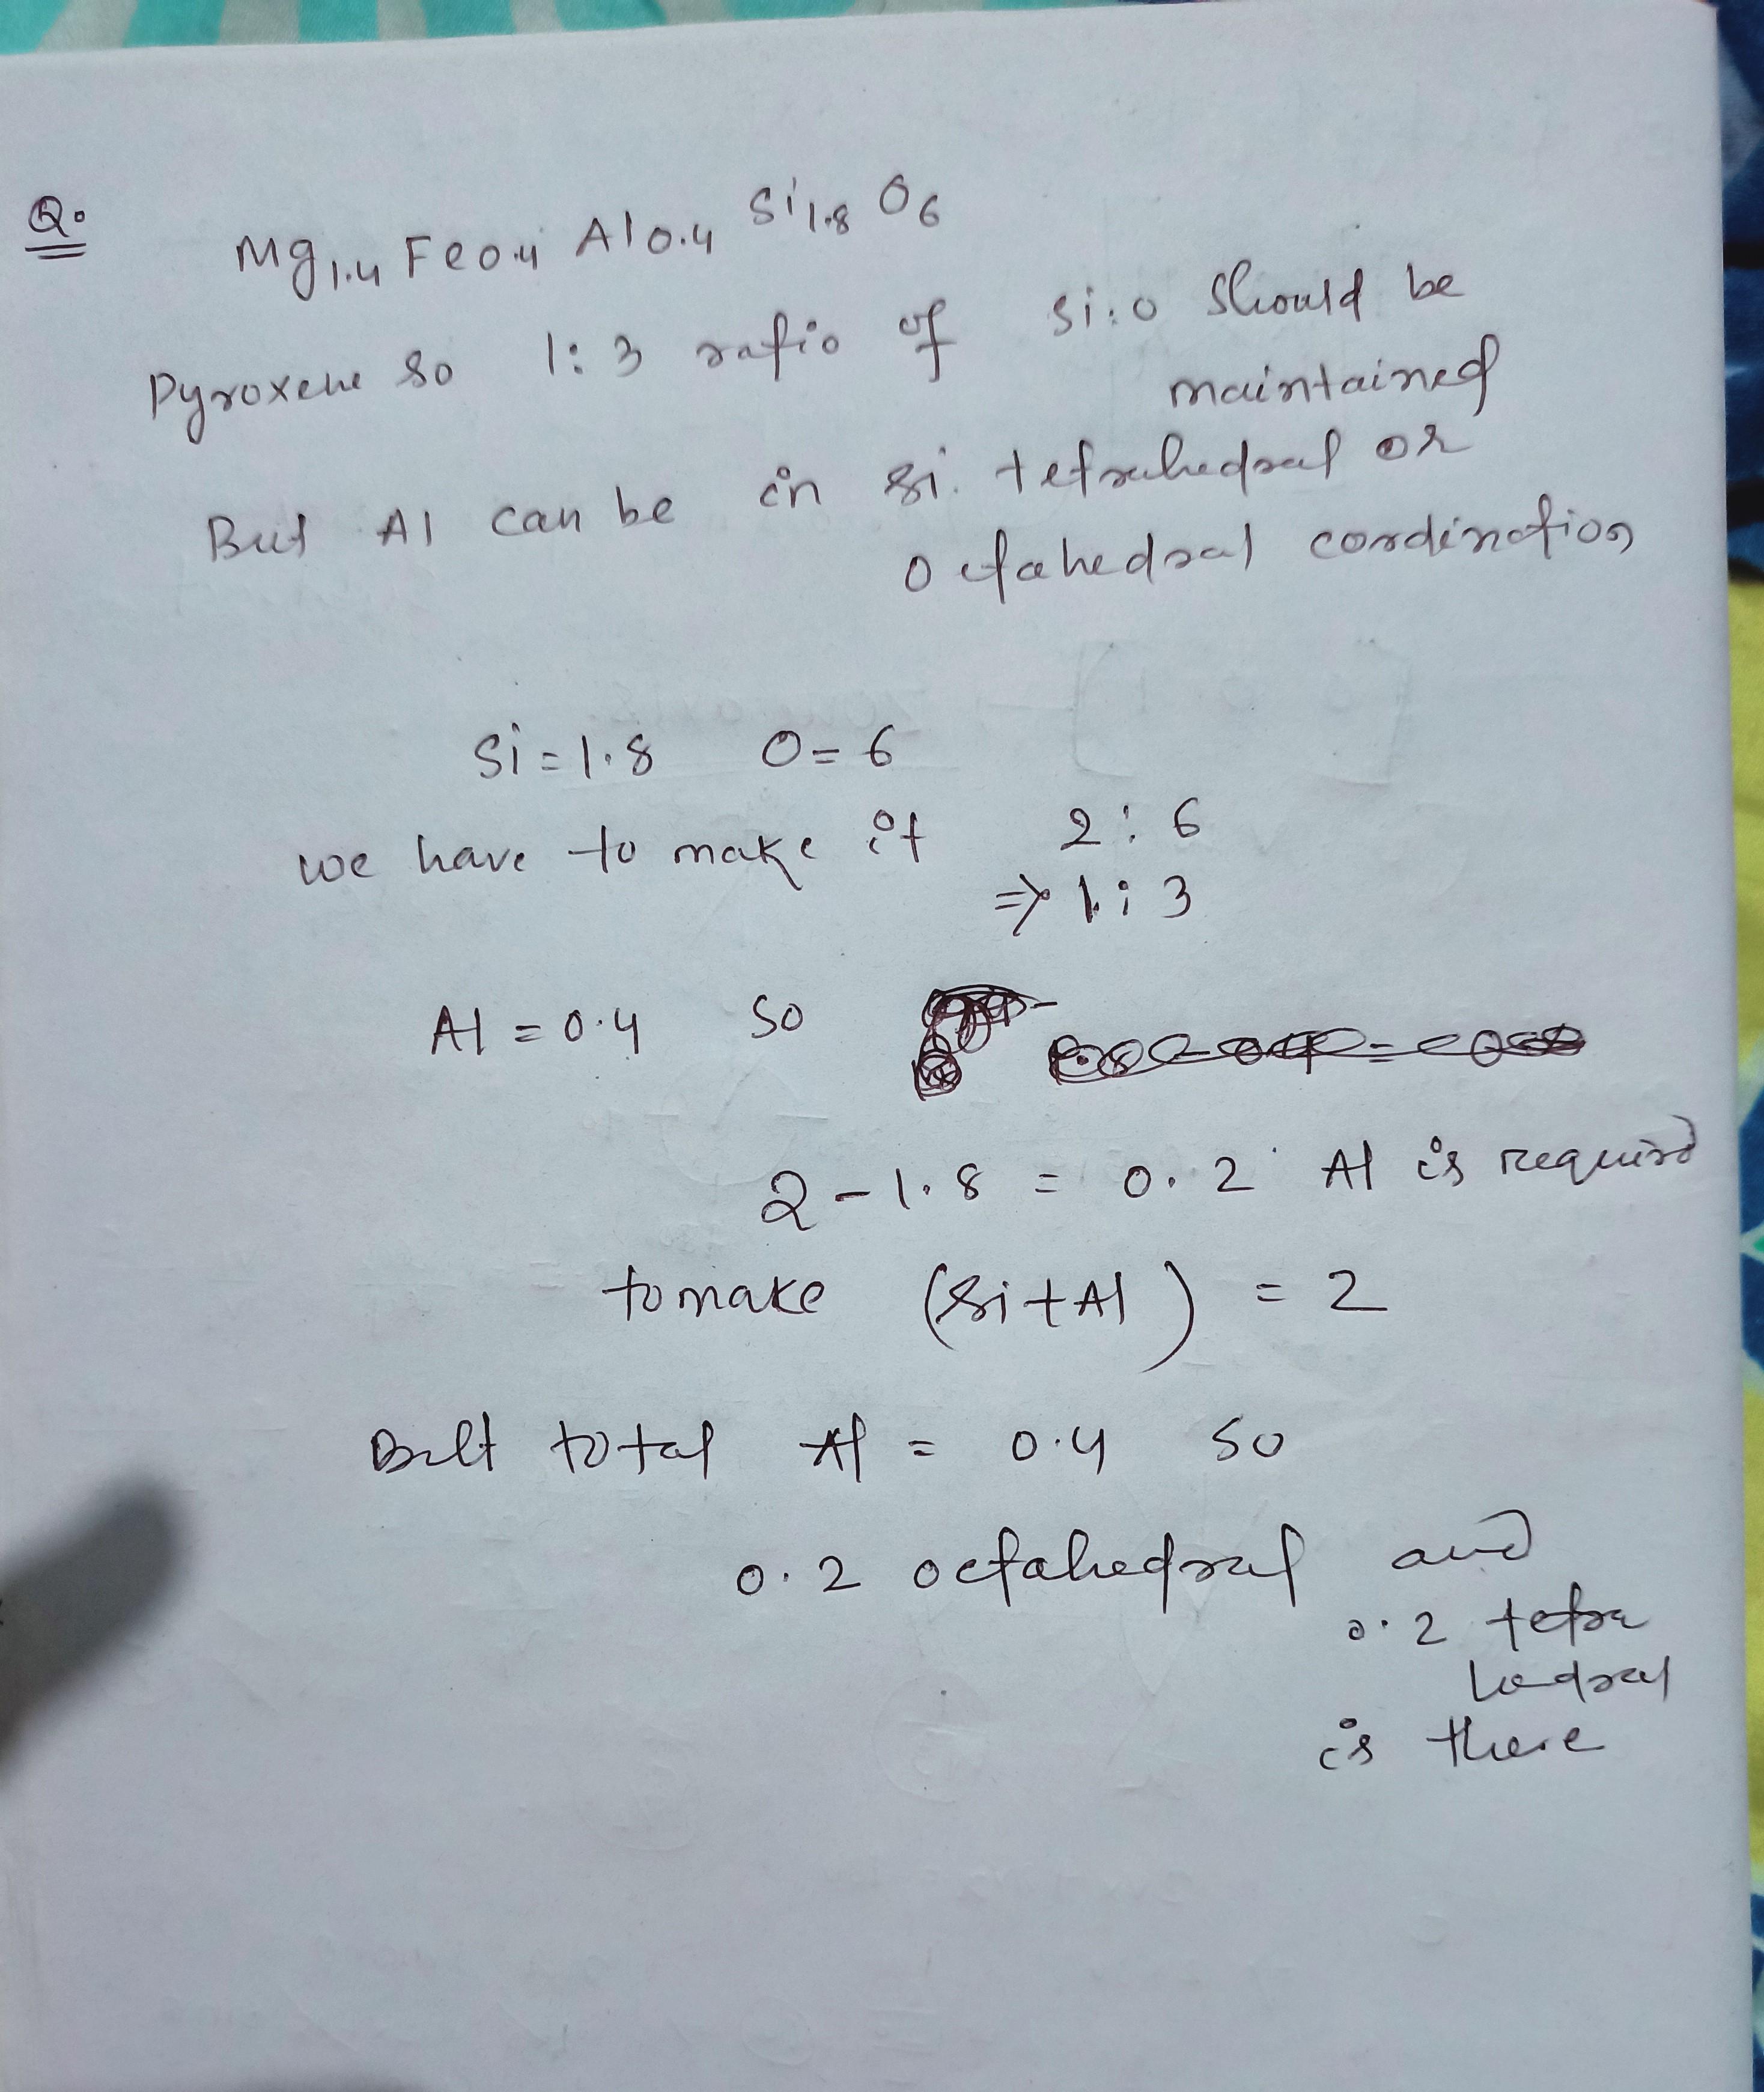 Q.
Mg1.4 Fe0.4 Al0.4 Si1.8 O6
Pyroxene so 1:3 ratio of Si:O should be
maintained
But Al can be in Si. tetrahedral or
octahedral cordination
Si=1.8 O=6
we have to make it 2:6
⇒ 1:3
Al = 0.4 so
2-1.8 = 0.2 Al is required
to make (Si+Al) = 2
But total Al = 0.4 so
0.2 octahedral and
0.2 tetra
hedral
is there